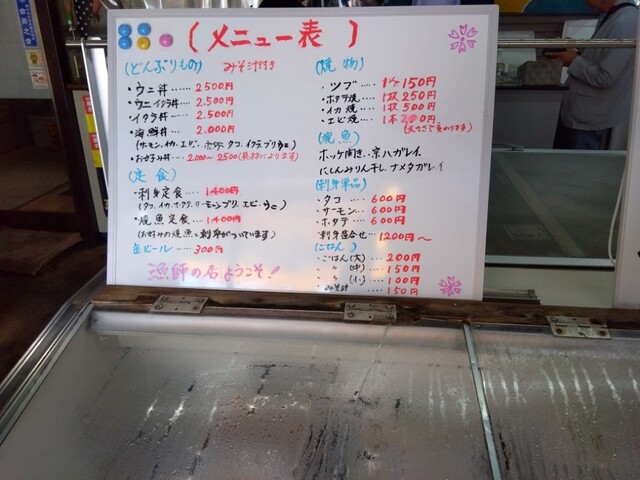 (メニュー表)
(どんぶりもの) みそ汁付き
・ウニ丼 ････ 2500円
・ウニイクラ丼 ･･･ 2.500円
・イクラ丼 ････ 2.500円
・海鮮丼 ････ 2.000円
(サーモン,イカ,エビ,ホタテ,タコ,イクラ,ブリ,ウニ)
・お好み丼 ･･ 2.000~2500(具材によります)
(定食)
・刺身定食 ････ 1400円
・焼魚定食 ････ 1400円
(お好みの焼魚と刺身がついています)
缶ビール ････ 300円
漁師の店ようこそ!!
(焼物)
・ツブ ････ 1ヶ150円
・ホタテ焼 ････ 1枚250円
・イカ焼 ････ 1枚500円
・エビ焼 ････ 1本200円
(焼魚)
ホッケ開き、宗ハガレイ、
にしんみりん干し、ナメタガレイ
(刺身単品)
・タコ ････ 600円
・サーモン ････ 600円
・ホタテ ････ 600円
・刺身盛合せ ･･･ 1200円~
(ごはん)
・ごはん(大) ････ 200円
・〃(中) ････ 150円
・〃(小) ････ 100円
・みそ汁 ････ 150円